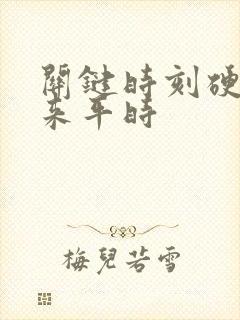 關鍵時刻硬
来平時
梅兒若雪